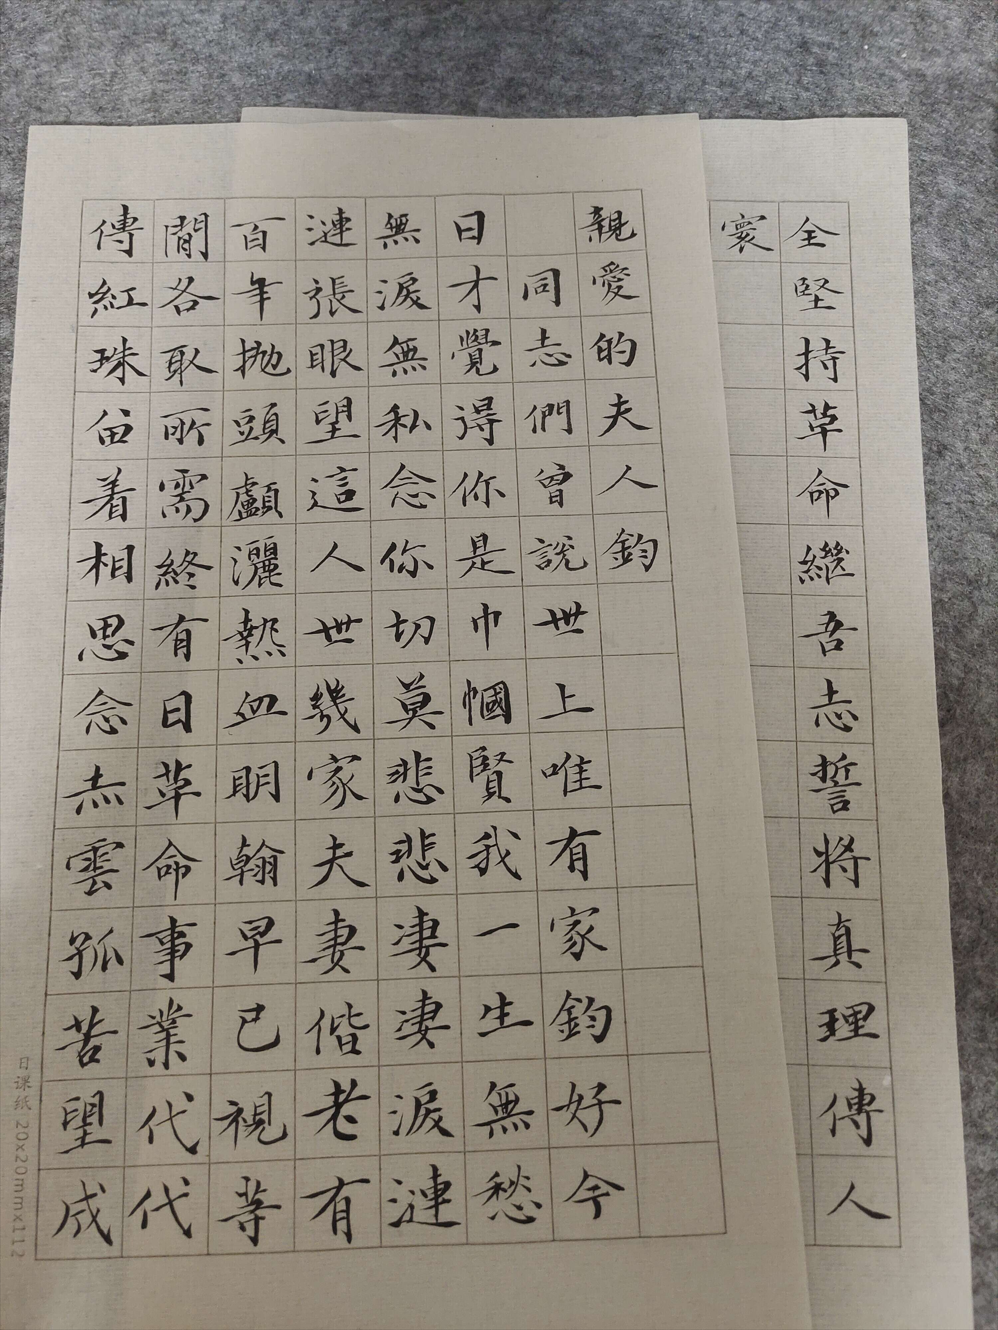 親愛的夫人鈞
同志們曾説世上唯有家鈞好今
日才覺得你是巾幗賢我一生無愁
無淚無私念你切莫悲悲淒淒淚漣
漣張眼望這人世幾家夫妻偕老有
百年抛頭顱灑熱血明翰早已視等
閒各取所需終有日革命事業代代
傳紅珠留着相思念赤雲孤苦望成
全堅持革命繼吾志誓將真理傳人
寰
日课纸 20x20mmx112